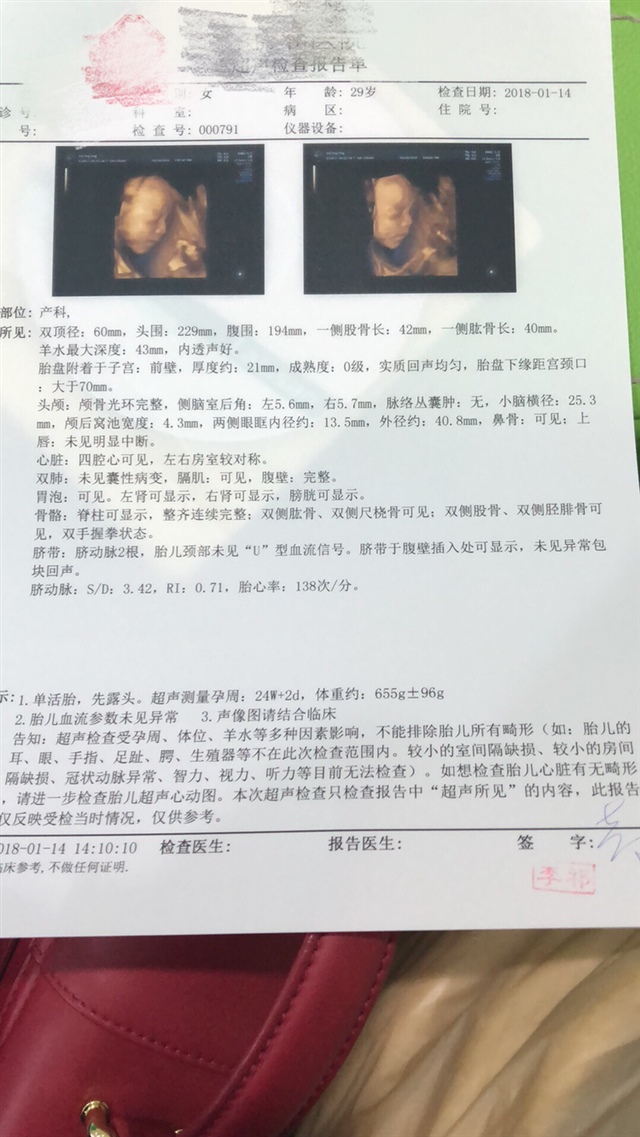 检查报告单
女 年 龄: 29岁 检查日期: 2018-01-14
诊 号 科 室: 病 区: 住 院 号:
号: 检 查 号: 000791 仪器设备:
部位: 产科,
所见: 双顶径: 60mm, 头围: 229mm, 腹围: 194mm, 一侧股骨长: 42mm, 一侧肱骨长: 40mm。
羊水最大深度: 43mm, 内透声好。
胎盘附着于子宫: 前壁, 厚度约: 21mm, 成熟度: 0级, 实质回声均匀, 胎盘下缘距宫颈口
: 大于70mm。
头颅: 颅骨光环完整, 侧脑室后角: 左5.6mm, 右5.7mm, 脉络丛囊肿: 无, 小脑横径: 25.3
mm, 颅后窝池宽度: 4.3mm, 两侧眼眶内径约: 13.5mm, 外径约: 40.8mm, 鼻骨: 可见; 上
唇: 未见明显中断。
心脏: 四腔心可见, 左右房室较对称。
双肺: 未见囊性病变, 膈肌: 可见, 腹壁: 完整。
胃泡: 可见。左肾可显示, 右肾可显示, 膀胱可显示。
骨骼: 脊柱可显示, 整齐连续完整; 双侧肱骨、双侧尺桡骨可见; 双侧股骨、双侧胫腓骨可
见, 双手握拳状态。
脐带: 脐动脉2根, 胎儿颈部未见“U”型血流信号。脐带于腹壁插入处可显示, 未见异常包
块回声。
脐动脉: S/D: 3.42, RI: 0.71, 胎心率: 138次/分。
示: 1.单活胎, 先露头。超声测量孕周: 24W+2d, 体重约: 655g±96g
2.胎儿血流参数未见异常 3.声像图请结合临床
告知: 超声检查受孕周、体位、羊水等多种因素影响, 不能排除胎儿所有畸形(如: 胎儿的
耳、眼、手指、足趾、腭、生殖器等不在此次检查范围内。较小的室间隔缺损、较小的房间
隔缺损、冠状动脉异常、智力、视力、听力等目前无法检查)。如想检查胎儿心脏有无畸形
, 请进一步检查胎儿超声心动图。本次超声检查只检查报告中“超声所见”的内容, 此报告
仅反映受检当时情况, 仅供参考。
018-01-14 14:10:10 检查医生: 报告医生: 签 字:
临床参考, 不做任何证明.